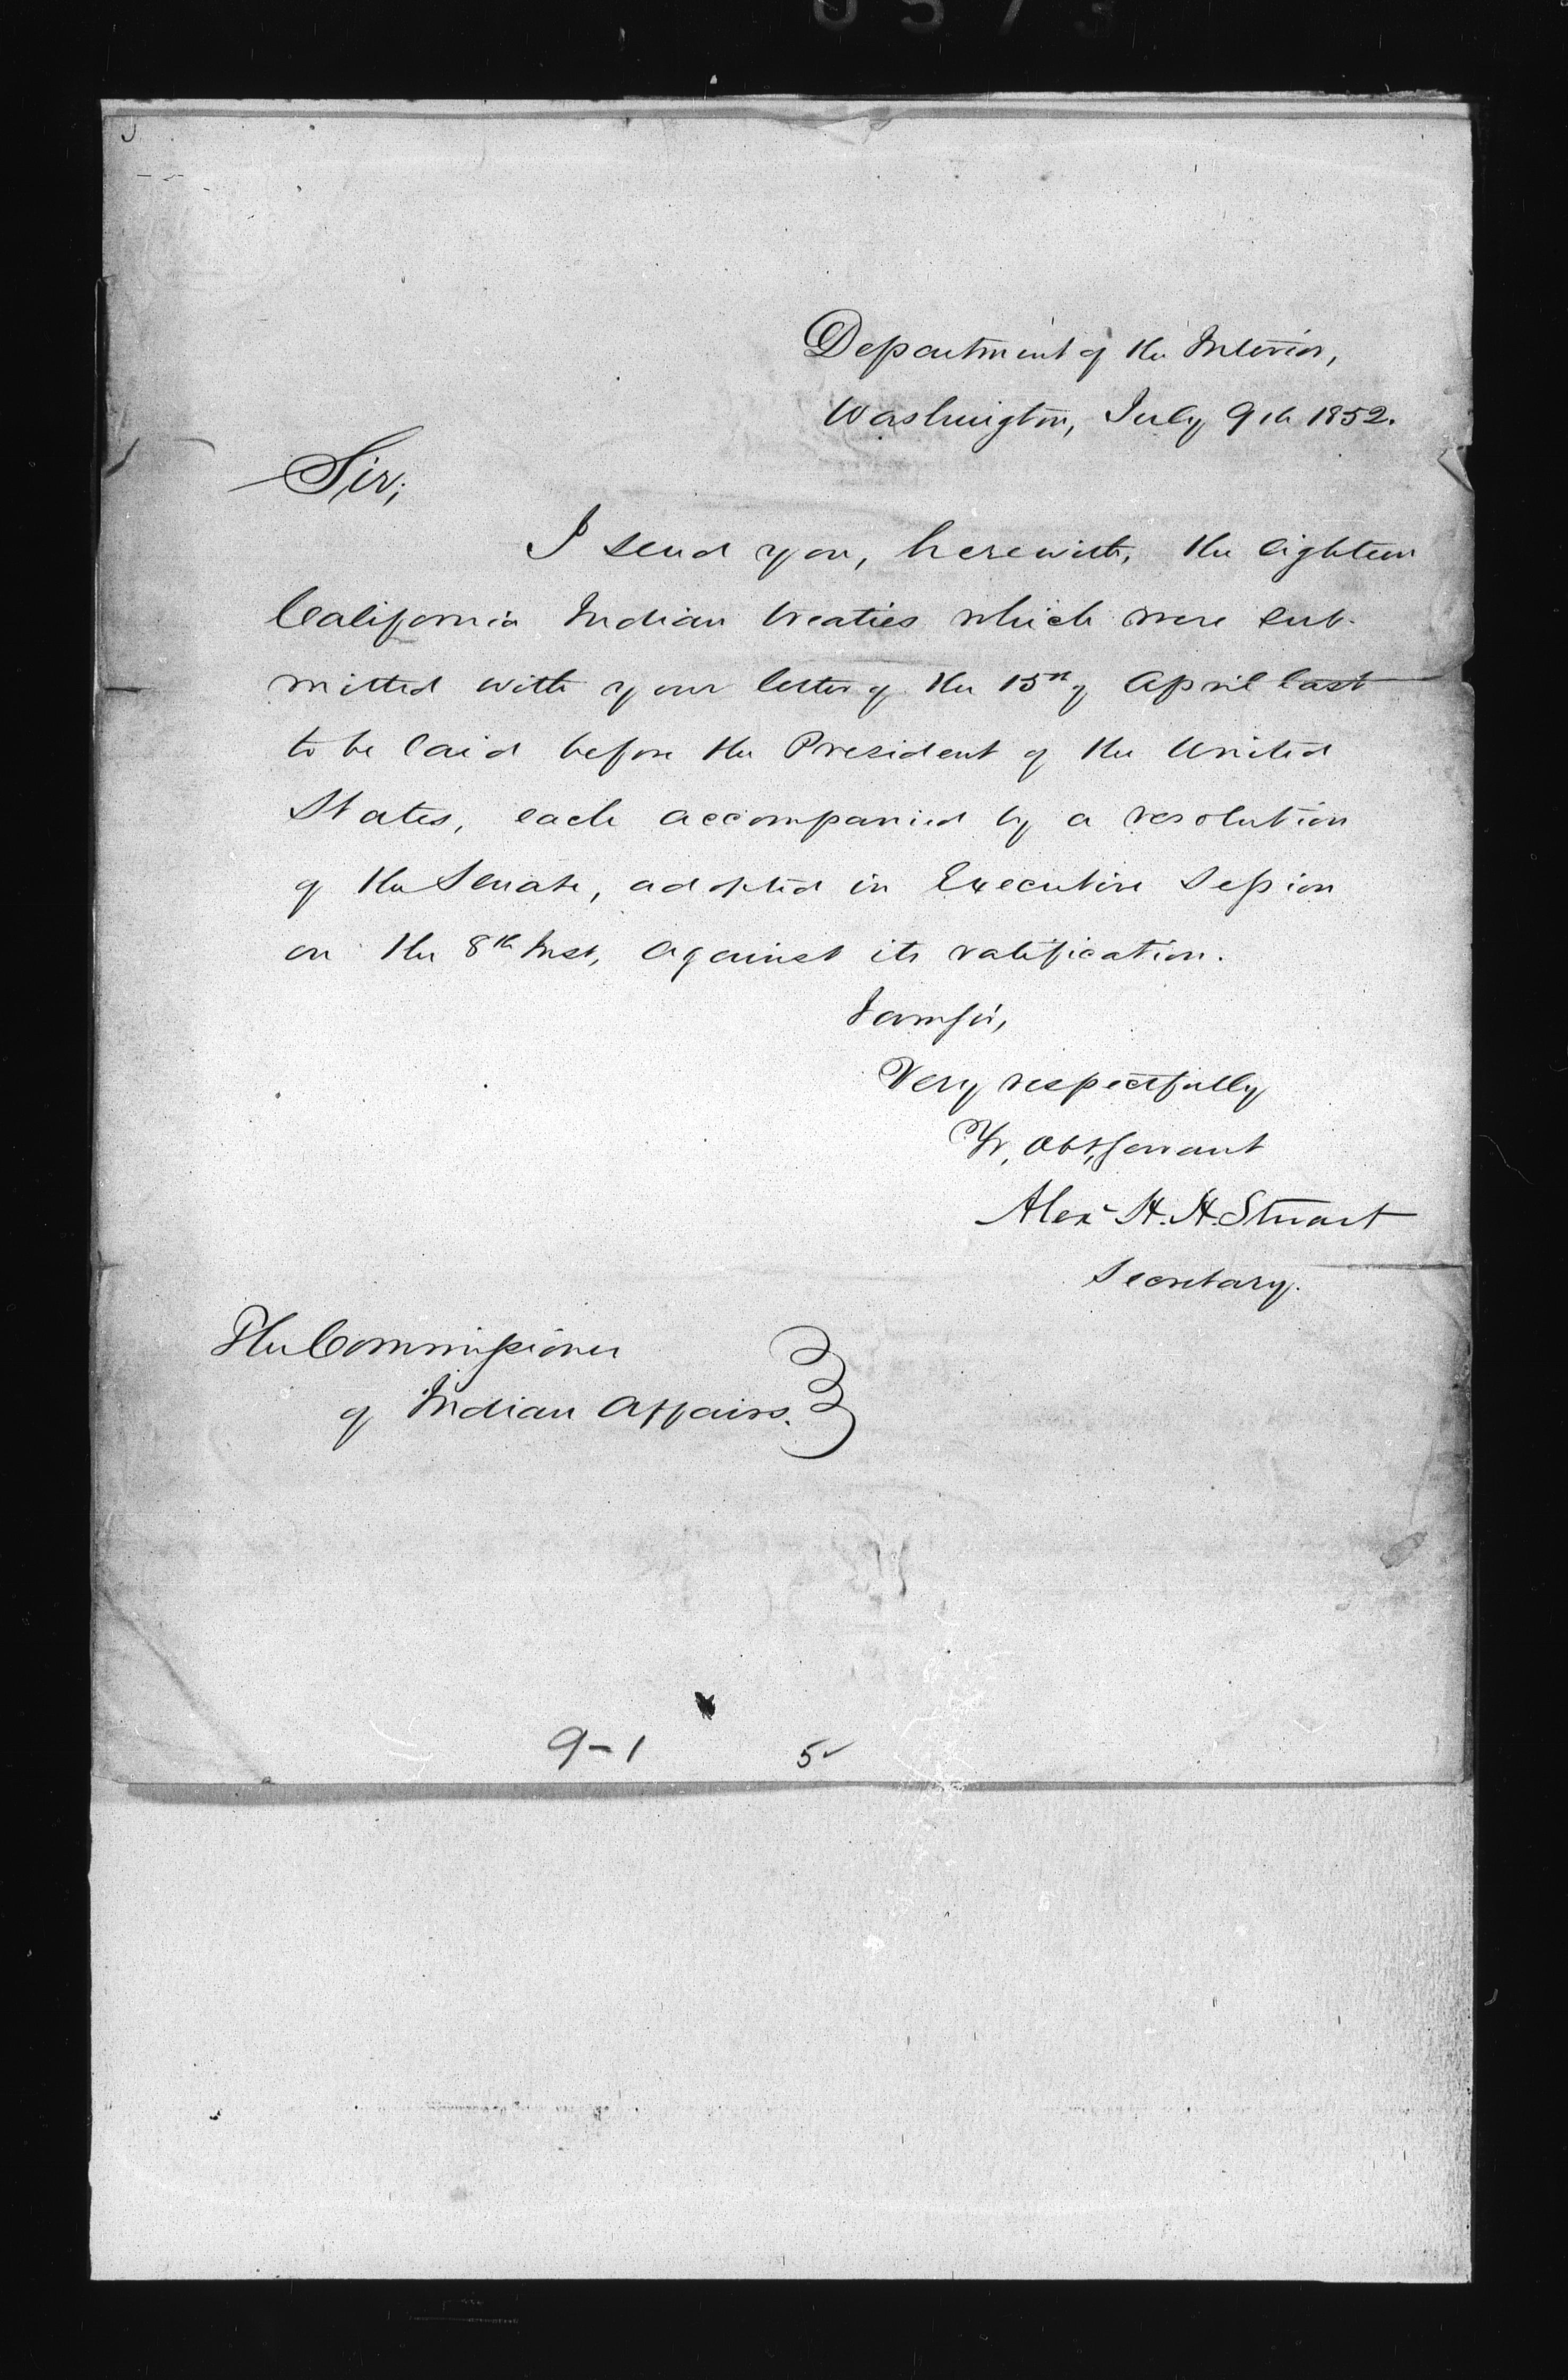 Department of the Interior,
Washington, July 9th 1852.
Sir;
I send you, herewith, the eighteen
California Indian treaties which were sub-
mitted with your letter of the 15th of April last
to be laid before the President of the United
States, each accompanied by a resolution
of the Senate, adopted in Executive Session
on the 8th Inst, against its ratification.
I am Sir,
Very respectfully
Yr, Obt, Servant
Alex. H. H. Stuart
Secretary.
The Commissioner
of Indian Affairs.
9-1 5